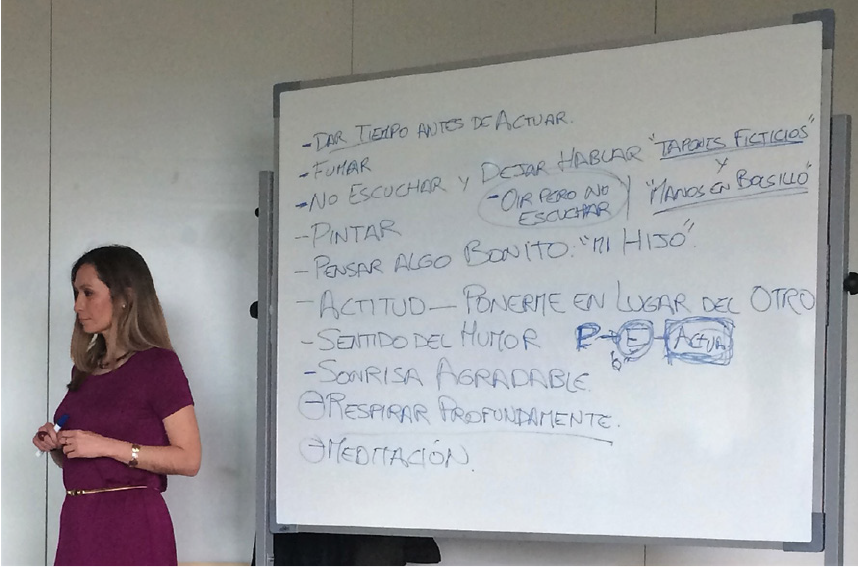 - DAR TIEMPO ANTES DE ACTUAR.
- FUMAR
- NO ESCUCHAR Y DEJAR HABLAR "TAPONES FICTICIOS"
Y
- OIR PERO NO
ESCUCHAR
"MANOS EN BOLSILLO"
- PINTAR
- PENSAR ALGO BONITO. "MI HIJO".
- ACTITUD — PONERME EN LUGAR DEL OTRO
- SENTIDO DEL HUMOR
P → E → ACTUA
- SONRISA AGRADABLE.
- RESPIRAR PROFUNDAMENTE.
- MEDITACIÓN.